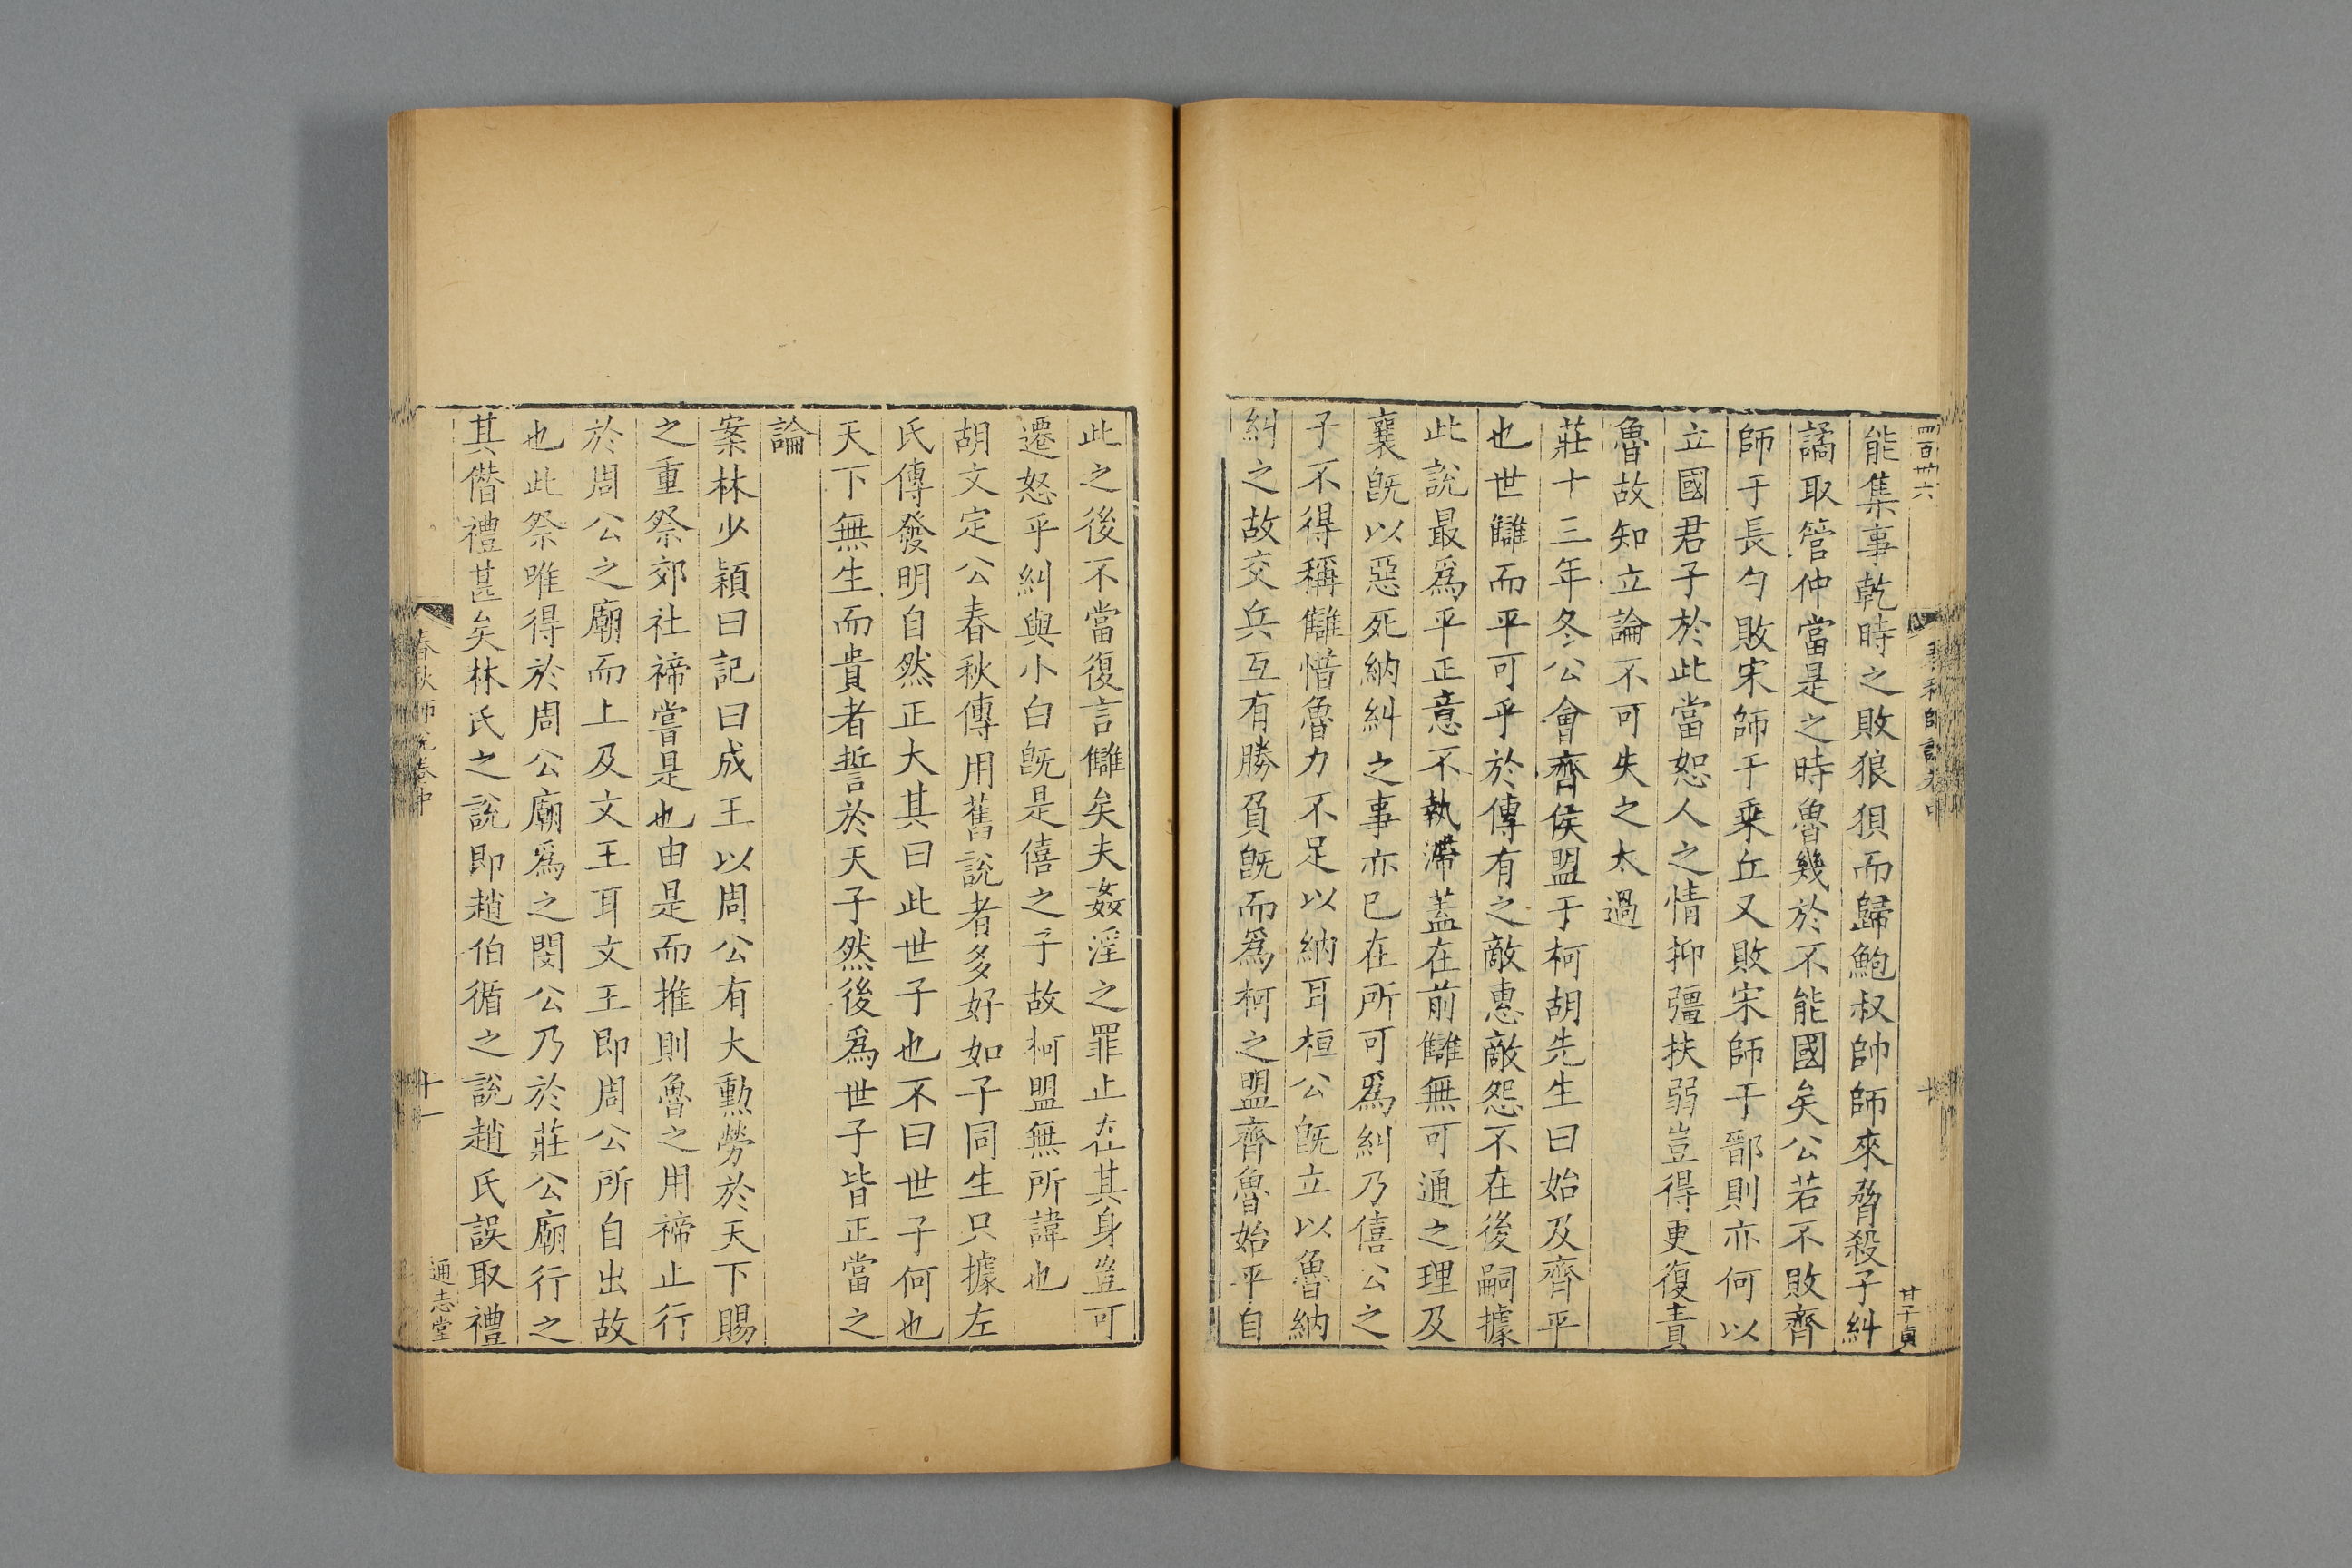 四百卅六
春秋師說卷中
十
甘子貞
能集事乾時之敗狼狽而歸鮑叔帥師來脅殺子糾
譎取管仲當是之時魯幾於不能國矣公若不敗齊
師于長勺敗宋師于乗丘又敗宋師于鄑則亦何以
立國君子於此當恕人之情抑彊扶弱豈得更復責
魯故知立論不可失之太過
莊十三年冬公會齊侯盟于柯胡先生曰始及齊平
也世讎而平可乎於傳有之敵惠敵怨不在後嗣據
此說最爲平正意不執滯蓋在前讎無可通之理及
襄旣以惡死納糾之事亦已在所可爲糾乃僖公之
子不得稱讎惜魯力不足以納耳桓公旣立以魯納
糾之故交兵互有勝負旣而爲柯之盟齊魯始平自
此之後不當復言讎矣夫姦淫之罪止在其身豈可
遷怒乎糾與小白旣是僖之子故柯盟無所諱也
胡文定公春秋傳用舊說者多好如子同生只據左
氏傳發明自然正大其曰此世子也不曰世子何也
天下無生而貴者誓於天子然後爲世子皆正當之
論
案林少穎曰記曰成王以周公有大勲勞於天下賜
之重祭郊社禘嘗是也由是而推則魯之用禘止行
於周公之廟而上及文王耳文王即周公所自出故
也此祭唯得於周公廟爲之閔公乃於莊公廟行之
其僭禮甚矣林氏之說即趙伯循之說趙氏誤取禮
春秋師說卷中
十一
通志堂